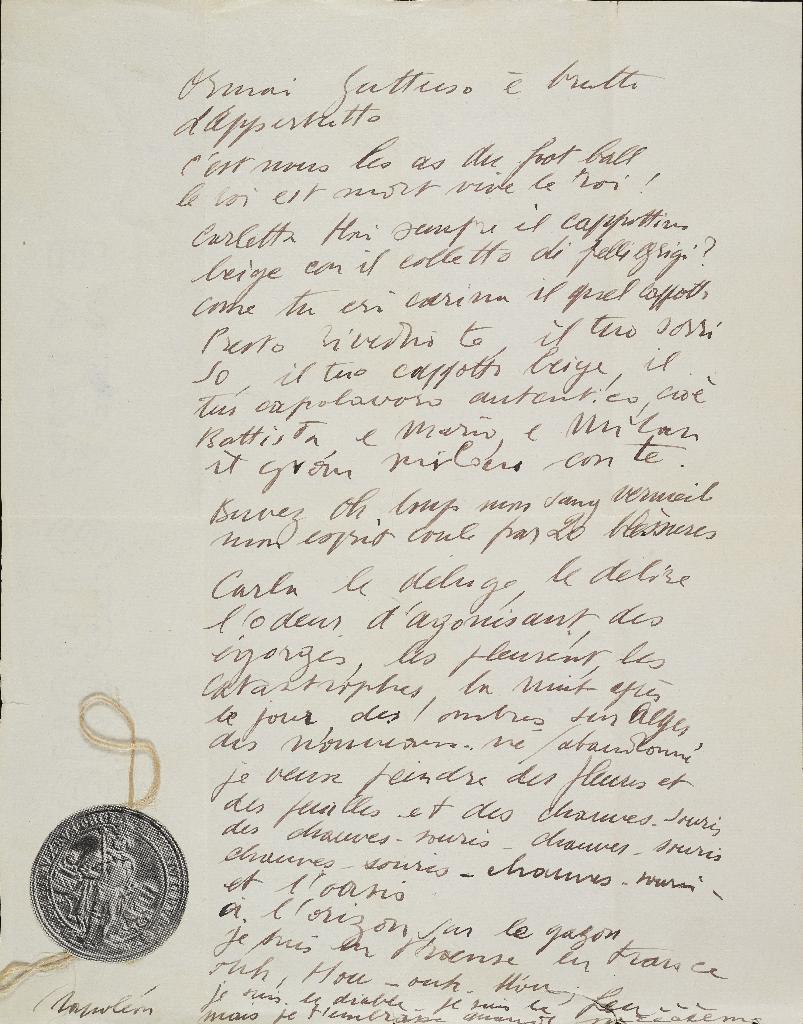 Ormai Guttuso è brutto
d'Appertutto
c'est nous les as du foot ball
le roi est mort vive le roi !
Carletta Hai sempre il cappottino
beige con il colletto di pelli grigi?
come tu eri carina il quel cappotto
Presto rivedrò te, il tuo sorri
so, il tuo cappotto beige, il
tuo capolavoro autentico, cioè
Battista e Mario, e Milan
il gran milan con te.
Buvez oh loup mon sang vermeil
mon esprit coule par 20 blessures
Carla le déluge, le delire
l'odeur d'agonisant, des
égorgés, les pleurent, les
Catastrophes, la nuit après
le jour, des ombres sur
des nouveau-né abandonné
je veux peindre des fleurs et
des feuilles et des chauves-souris
des chauves-souris - chauves-souris
chauves-souris - chauves-souris -
et l'oasis
à l'orizon sur le gazon
je suis en en France
ouh, Hou - ouh - Hou
je suis le diable - je suis le
mais je t'embrasse
Napoleón